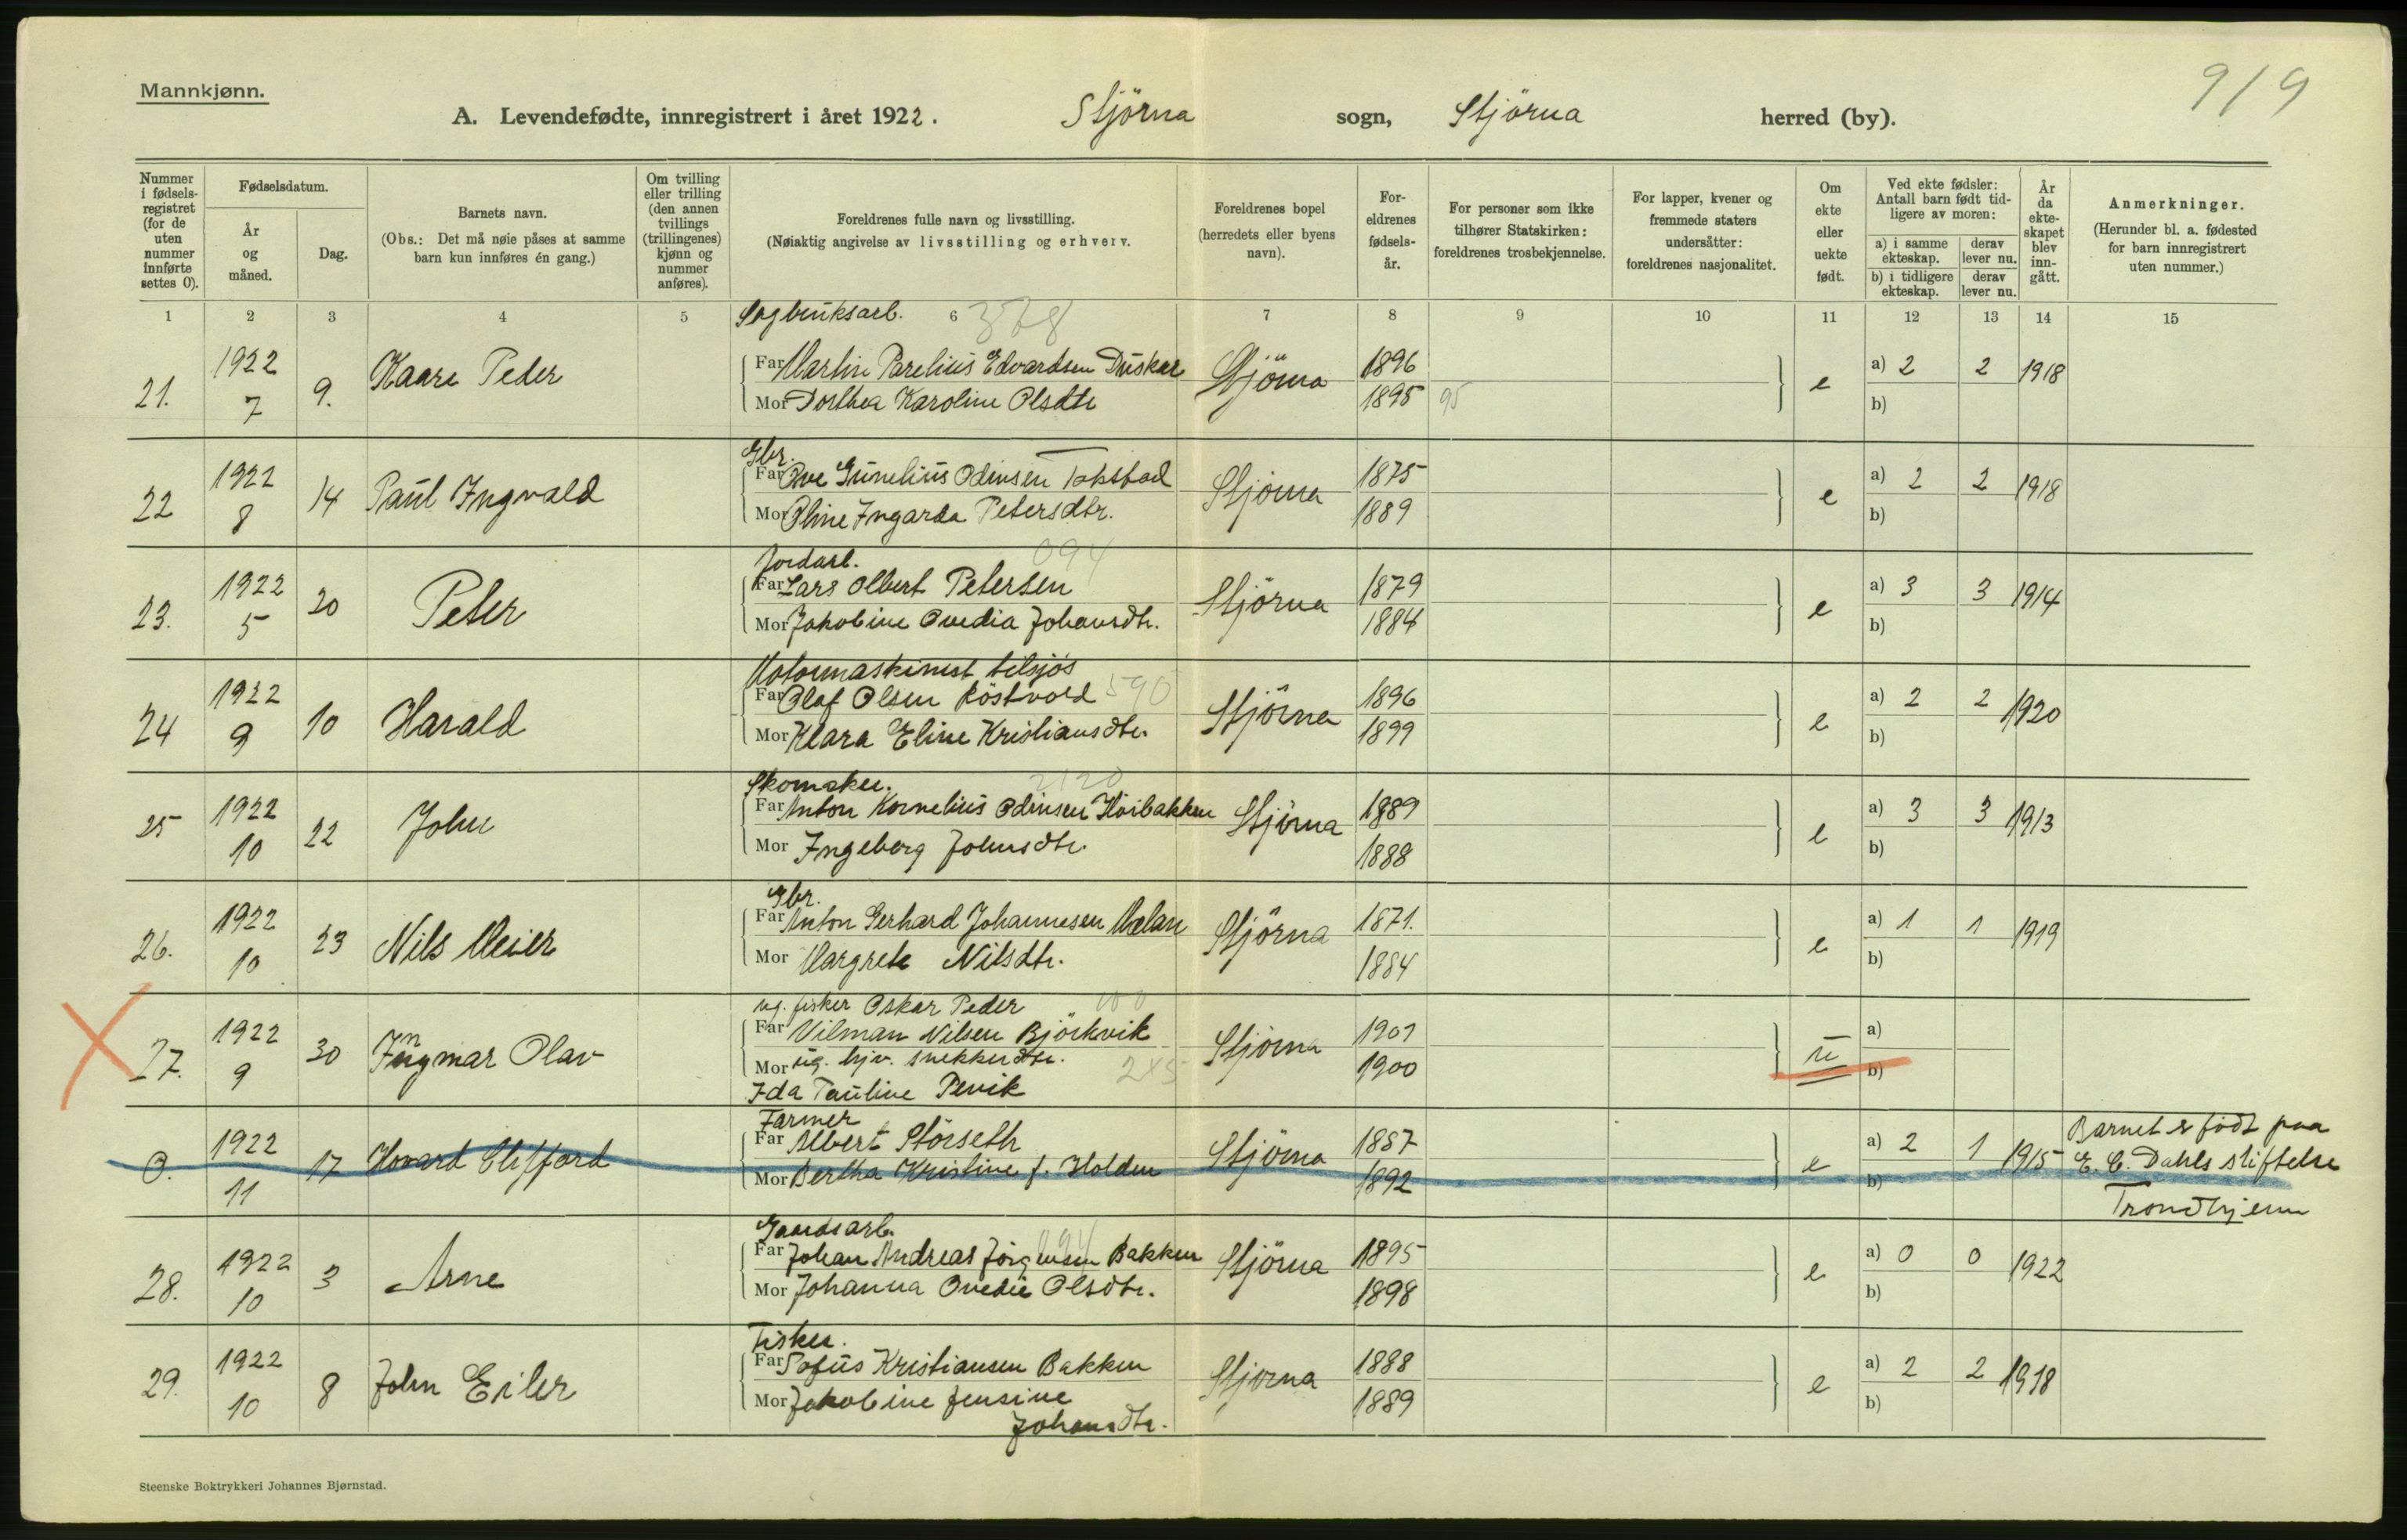 919
Mannkjønn.
A. Levendefødte, innregistrert i året 1922. Stjörna sogn, Stjörna herred (by).
Nummer i fødsels-registret (for de uten nummer innførte settes 0).
Fødselsdatum.
År og måned.
Dag.
Barnets navn.
(Obs.: Det må nøie påses at samme barn kun innføres én gang.)
Om tvilling eller trilling (den annen tvillings (trillingenes) kjønn og nummer anføres).
Foreldrenes fulle navn og livsstilling.
(Nøiaktig angivelse av livsstilling og erhverv.
Foreldrenes bopel (herredets eller byens navn).
For-eldrenes fødsels-år.
For personer som ikke tilhører Statskirken: foreldrenes trosbekjennelse.
For lapper, kvener og fremmede staters undersåtter: foreldrenes nasjonalitet.
Om ekte eller uekte født.
Ved ekte fødsler: Antall barn født tid-ligere av moren:
a) i samme ekteskap.
derav lever nu.
b) i tidligere ekteskap.
derav lever nu.
År da ekte-skapet blev inn-gått.
Anmerkninger.
(Herunder bl. a. fødested for barn innregistrert uten nummer.)
1 2 3 4 5 6 7 8 9 10 11 12 13 14 15
Sagbruksarb. 378
21. 1922 7 9. Kaare Peder
Far Martin Parelius Edvardsen Duskar Stjörna 1896 e a) 2 2 1918
Mor Dorthea Karoline Olsdtr 1895 95 b)
Gbr.
22 1922 8 14 Paul Ingvald
Far Ove Gunelius Odinsen Takstad Stjörna 1875 e a) 2 2 1918
Mor Oline Ingarda Petersdtr. 1889 b)
Jordarb. 094
23. 1922 5 20 Peter
Far Lars Olbert Petersen Stjörna 1879 e a) 3 3 1914
Mor Jakobine Ovedia Johansdtr. 1884 b)
Motormaskinist tilsjös 590
24 1922 9 10 Harald
Far Olaf Olsen Röstvold Stjörna 1896 e a) 2 2 1920
Mor Klara Eline Kristiansdtr. 1899 b)
Skomaker. 2120
25 1922 10 22 John
Far Anton Kornelius Odinsen Höibakken Stjörna 1889 e a) 3 3 1913
Mor Ingeborg Johnsdtr. 1888 b)
Gbr.
26. 1922 10 23 Nils Meier
Far Anton Gerhard Johannesen Mælan Stjörna 1871. e a) 1 1 1919
Mor Margrete Nilsdtr. 1884 b)
ug. fisker Oskar Peder
27. 1922 9 30 Ingmar Olav
Far Vilman Nilsen Björkvik Stjörna 1901 u a)
Mor ug. hjv. snekkerdtr. 245 1900 b)
Ida Pauline Pevik
Farmer
0. 1922 11 17 Howard Clifford
Far Albert Störseth Stjörna 1887 e a) 2 1 1915 Barnet er födt paa
Mor Bertha Kristine f. Holden 1892 b) E. C. Dahls stiftelse
Trondhjem
Gaardsarb. 094
28. 1922 10 3 Arne
Far Johan Andreas Jörgensen Bakken Stjörna 1895 e a) 0 0 1922
Mor Johanna Ovedie Olsdtr. 1898 b)
Fisker.
29. 1922 10 8 John Eiler
Far Sofus Kristiansen Bakken Stjorna 1888 e a) 2 2 1918
Mor Jakobine Jensine 1889 b)
Johansdtr.
Steenske Boktrykkeri Johannes Bjørnstad.